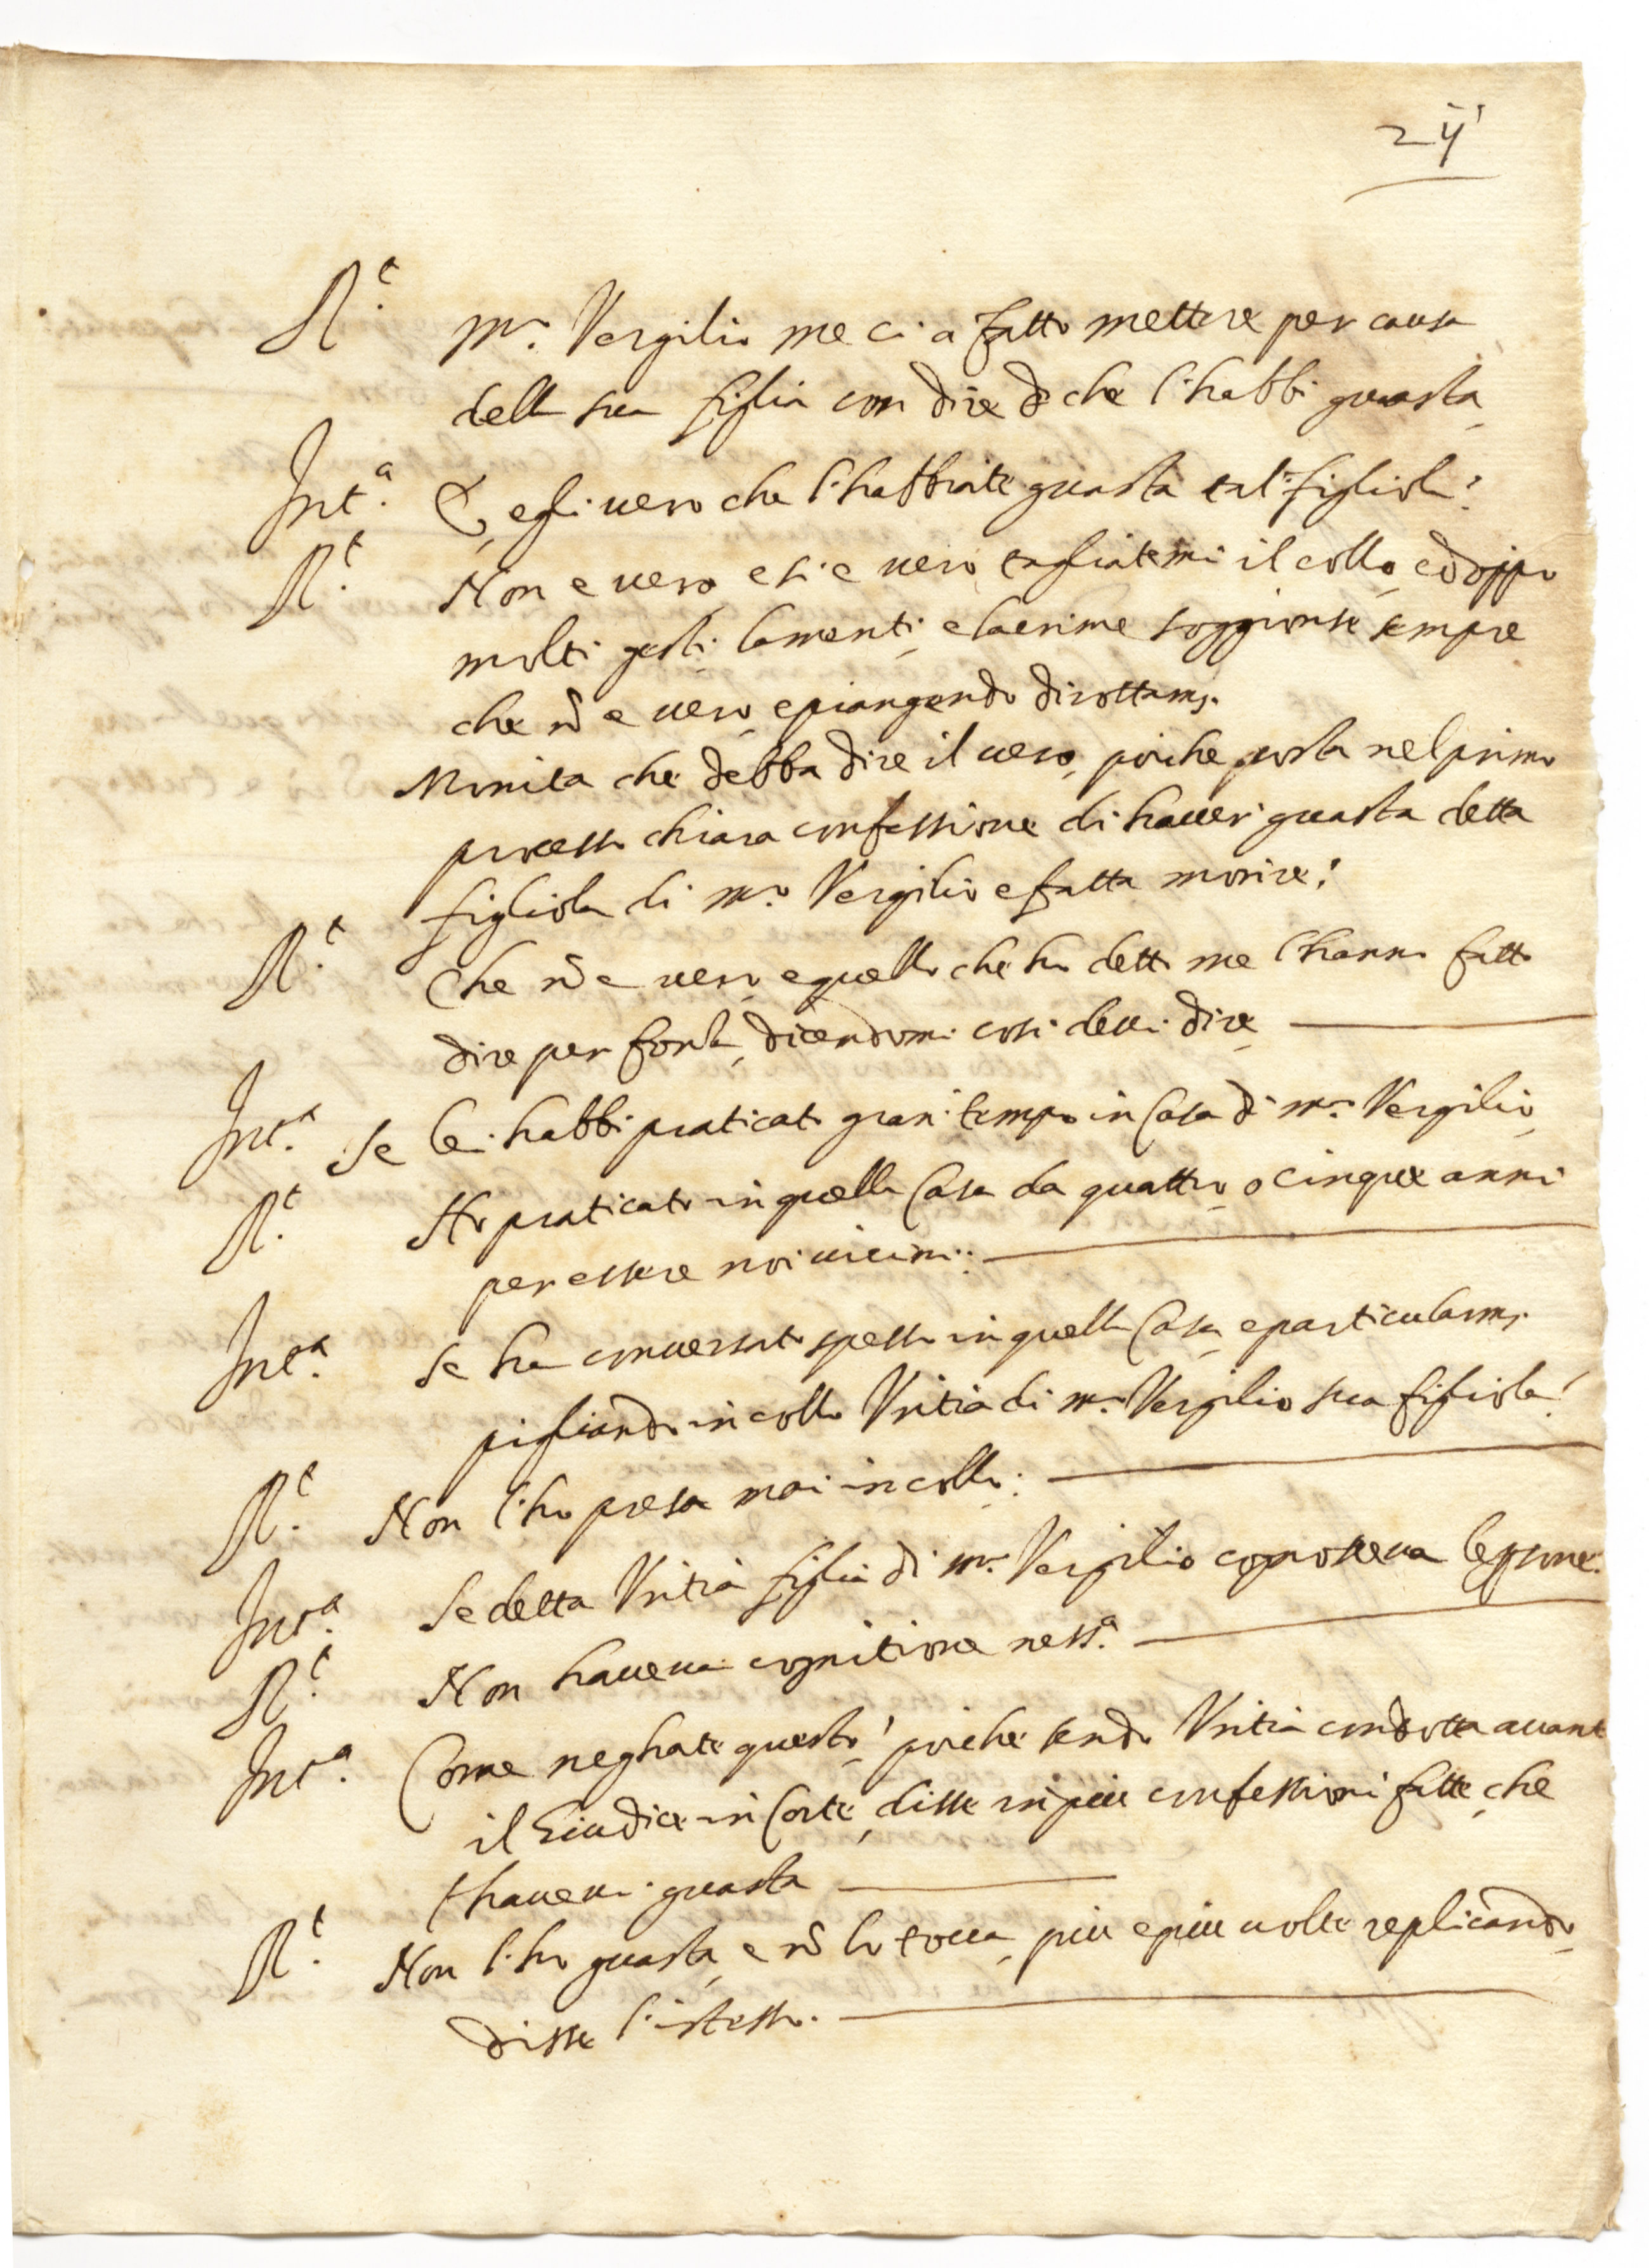 24
R.t m.ro Vergilio me ci a fatto mettere per causa
della sua figlia con dire di che l'habbi guasta,
Int.a È, egli uero che l'habbiate guasta tal figliola?
R.t Non e uero, e si e uero tagliatemi il collo, e doppo
molti gesti, lamenti, e lacrime soggionse sempre
che nō e uero, e piangendo dirottam.
Monita che debba dire il uero, poiche costa nel primo
processo chiara confessione di hauer guasta detta
figliola di m.ro Vergilio e fatta morire?
R.t Che nō e uero, e quello che ho detto me l'hanno fatto
dire per forza, dicendomi cosi deui dire,
Int.a Se lei habbi praticato gran tempo in Casa di m.ro Vergilio,
R.t Ho praticato in quella Casa da quattro, o cinque anni
per essere noi uicini:
Int.a Se ha conuersato spesso in quella Casa, e particularm.
pigliando in collo Vritia di m.ro Vergilio sua figliola?
R.t Non l'ho presa mai in collo:
Int.a Se detta Vritia figlia di m.ro Vergilio cognosceua le persone.
R.t Non haueua cognitione ness.a
Int.a Come neghate questo? poiche sendo Vritia condotta auant
il Giudice in Corte, disse in piu confessioni fatte, che
l'haueui guasta
R.t Non l'ho guasta, e nō l'ho tocca, piu e piu uolte replicando,
disse l'istesso.